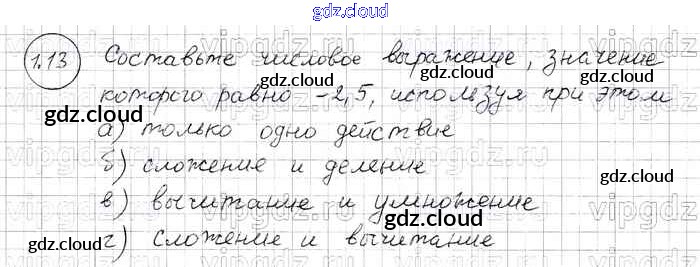 gdz.cloud
1.13 Составьте числовое выражение, значение
gdz.cloud gdz.cloud gdz.cloud
которого равно -2,5, используя при этом
gdz.cloud gdz.cloud
а) только одно действие
б) сложение и деление
gdz.cloud gdz.cloud
в) вычитание и умножение
gdz.cloud
г) сложение и вычитание
gdz.cloud gdz.cloud